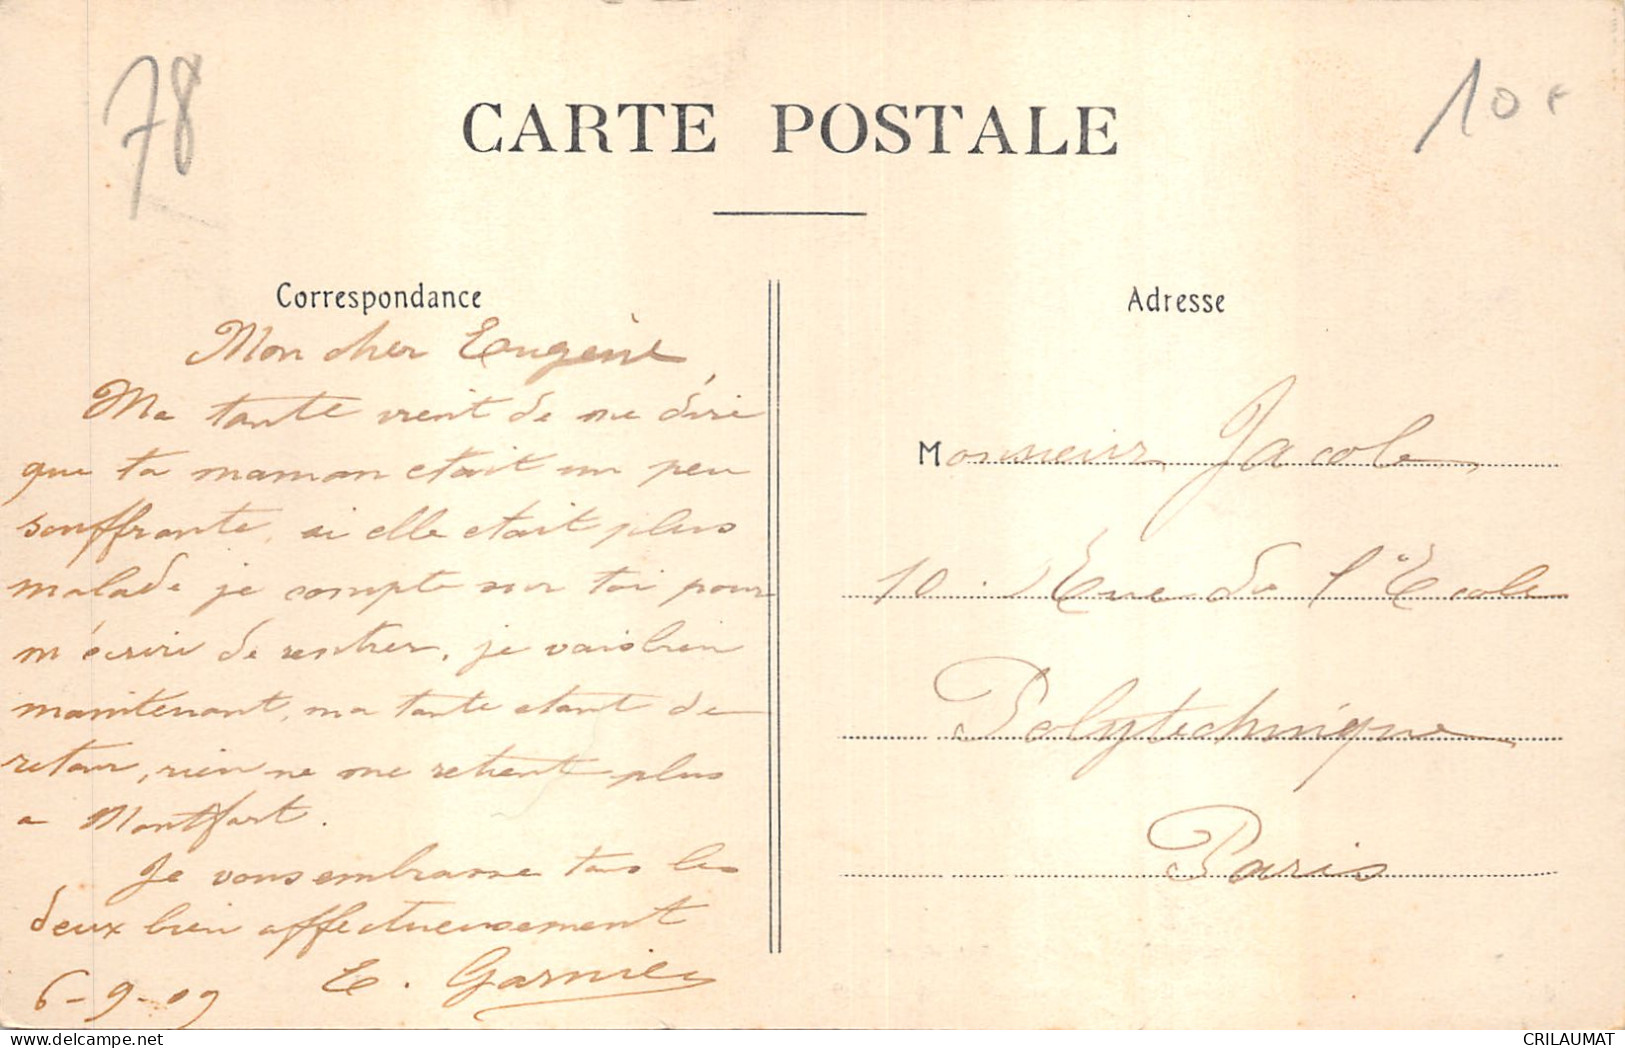 78
10 €
CARTE POSTALE
Correspondance
Mon cher Eugène,
Ma tante vient de me dire
que ta maman etait un peu
souffrante, si elle etait plus
malade je compte sur toi pour
m'écrire de rentrer, je vais bien
maintenant, ma tante etant de
retour, rien ne me retient plus
a Montfort.
Je vous embrasse tous les
deux bien affectueusement
6-9-09 E. Garnier
Adresse
Monsieur Jacob,
10 Rue de l'Ecole
Polytechnique
Paris
CRILAUMAT